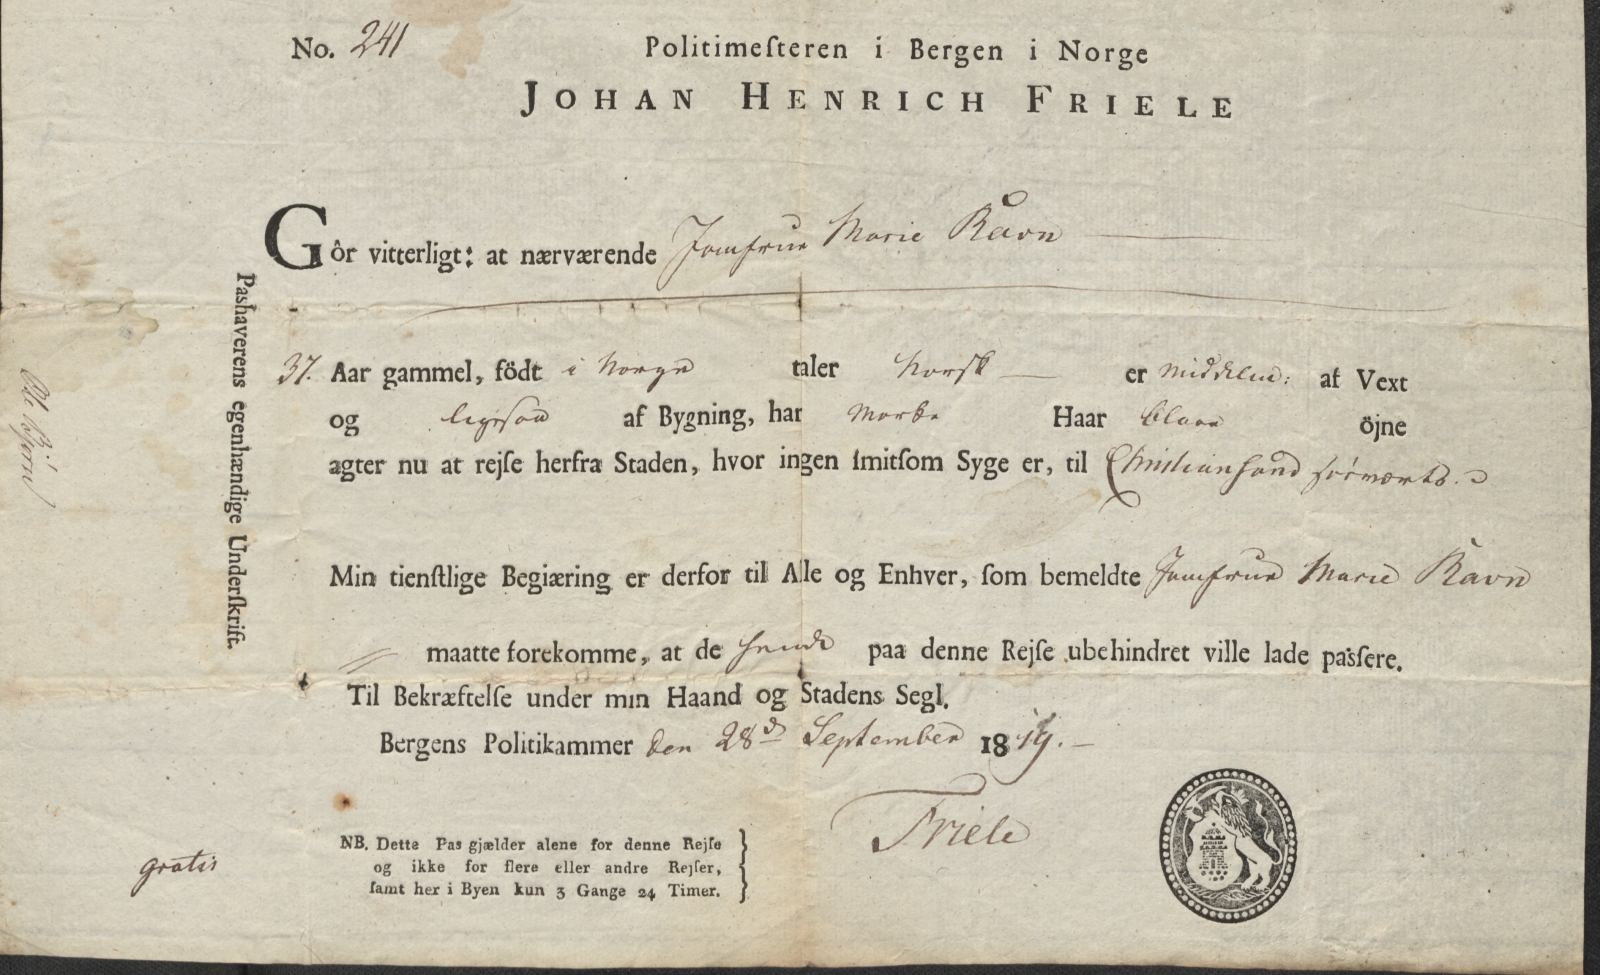 No. 241
Politimeſteren i Bergen i Norge
JOHAN HENRICH FRIELE
Gôr vitterligt: at nærværende Jomfrue Marie Ravn
37. Aar gammel, födt i Norge taler Norsk er middelm: af Vext
og af Bygning, har Mørke Haar blaae öjne
agter nu at rejſe herfra Staden, hvor ingen ſmitſom Syge er, til Christiansand
Min tienſtlige Begiæring er derfor til Alle og Enhver, ſom bemeldte Jomfrue Marie Ravn
maatte forekomme, at de hende paa denne Rejſe ubehindret ville lade paſſere.
Til Bekræftelſe under min Haand og Stadens Segl.
Bergens Politikammer den 28d September 1819.
Friele
NB. Dette Pas gjælder alene for denne Rejſe
og ikke for flere eller andre Rejſer,
ſamt her i Byen kun 3 Gange 24 Timer.
gratis
Pashaverens egenhændige Underſkrift.